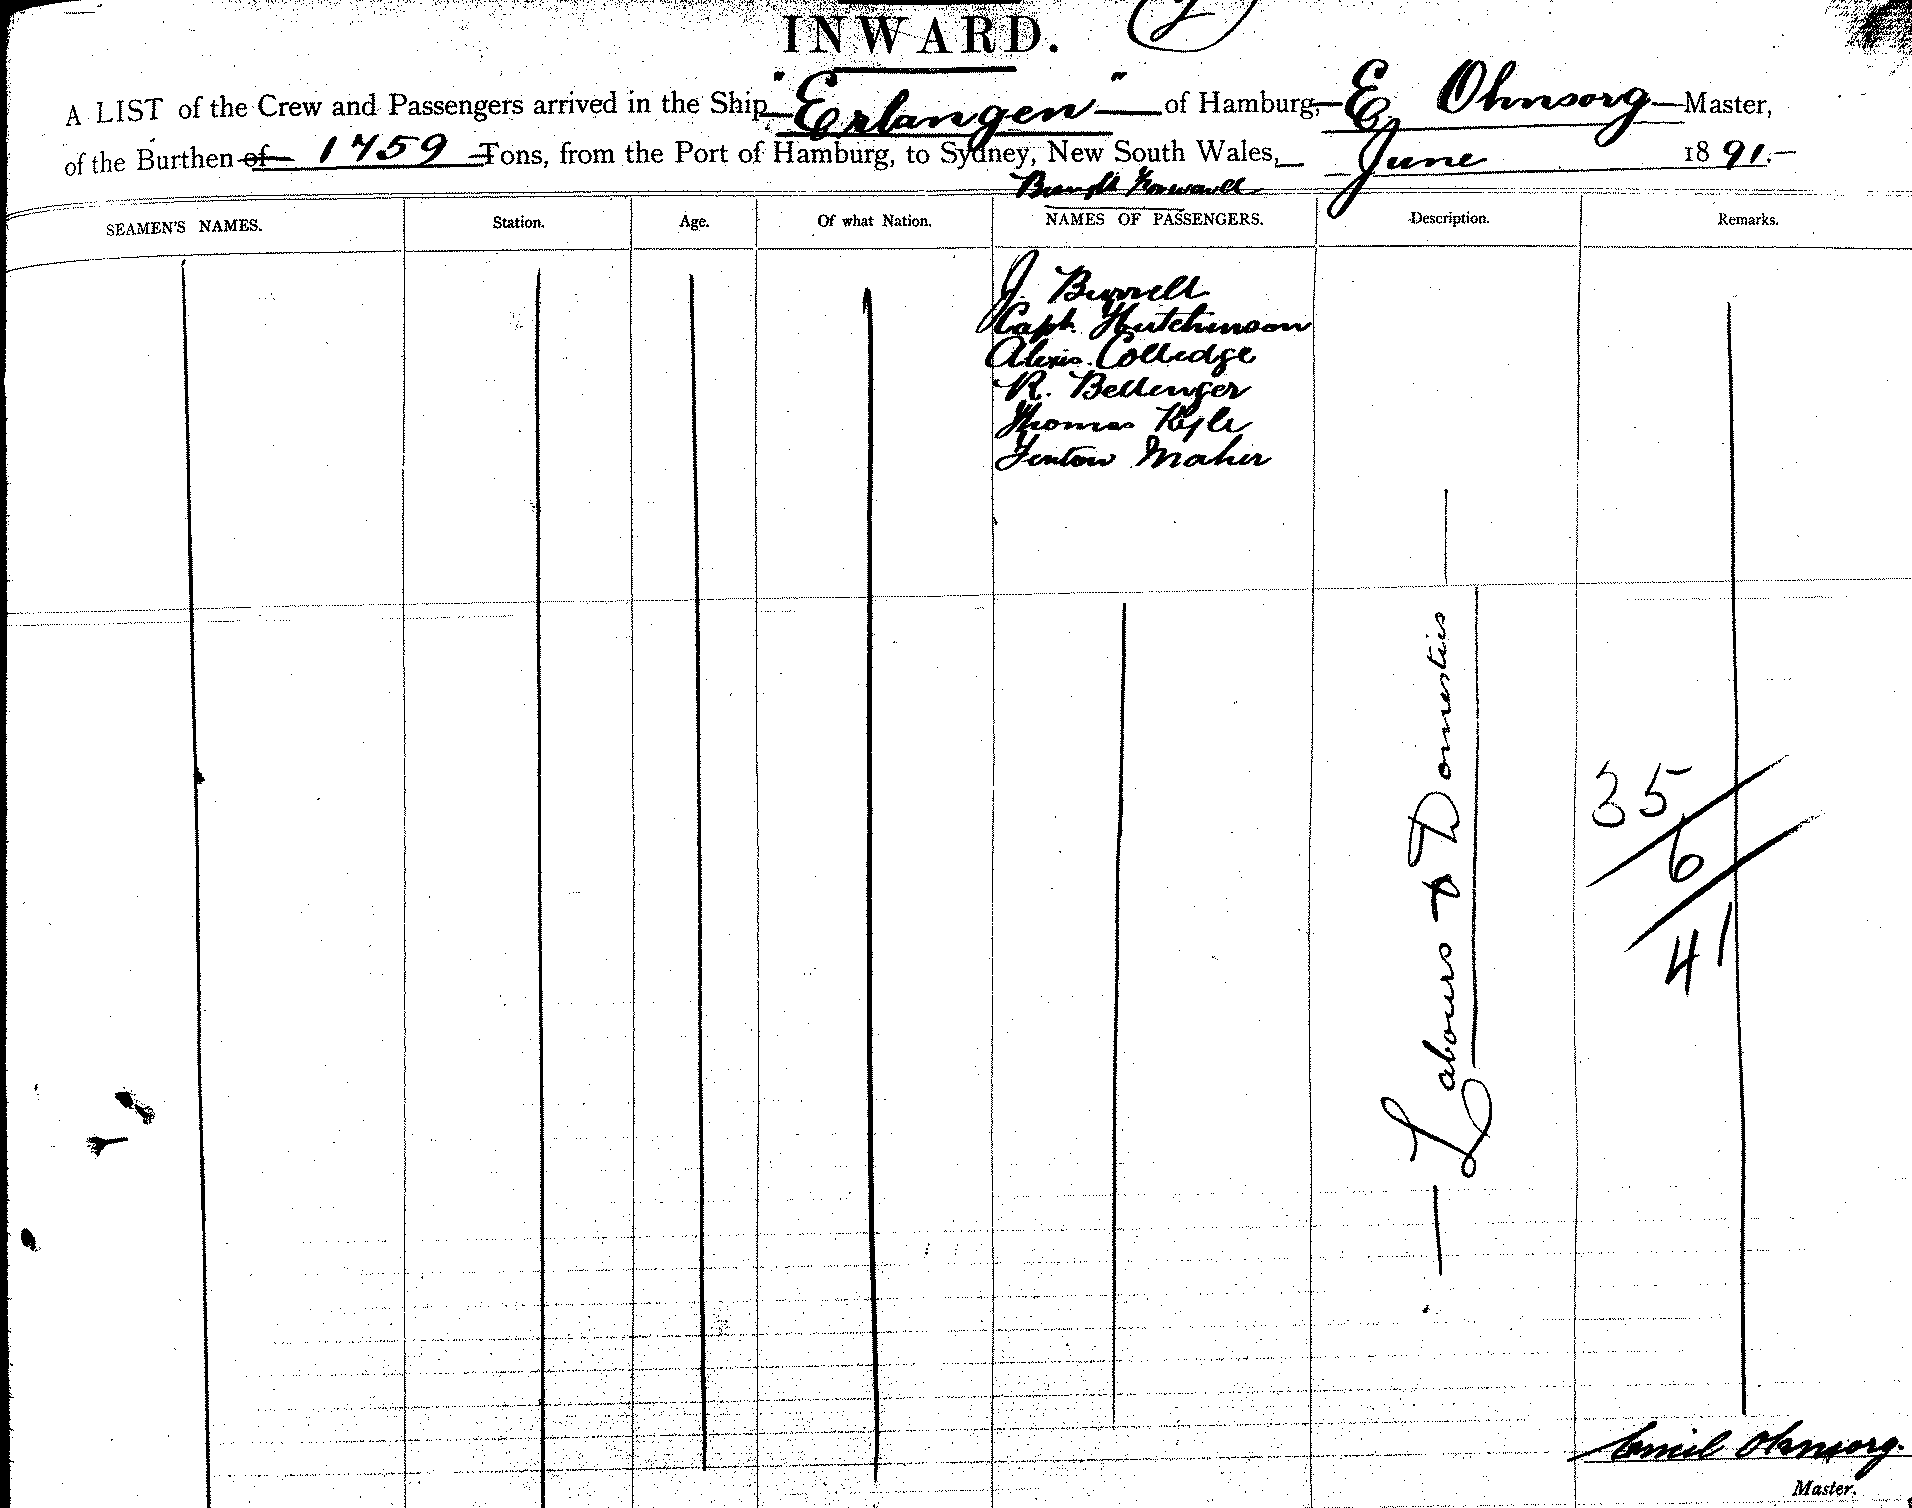 INWARD.
A LIST of the Crew and Passengers arrived in the Ship "Erlangen" of Hamburg, E Ohnsorg Master,
of the Burthen of 1459 Tons, from the Port of Hamburg, to Sydney, New South Wales, June 1891.
Brought Forward
SEAMEN'S NAMES. Station. Age. Of what Nation. NAMES OF PASSENGERS. Description. Remarks.
J. Burrell
Capt. Hutchinson
Alexis. Colledge
R. Bellenger
Thomas Kyle
Fenton Maher
Labours & Domestics
35
6
41
Emil Ohnsorg.
Master.